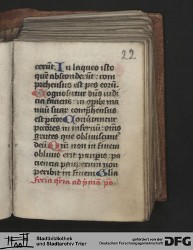 22
cerūt. In laqueo isto
quē absconderūt: com
prehensus est pes eorū.
Cognoscitur dn̄s iudi
cia faciens: in opibꝰ ma
nuū suar̄ comprehensus
est pctōr. Convertantur
pctōres in infernū: omēs
gentes que obliviscunt̄
deū. Qm̄ non in finem
oblivio erit paupis: pa
cientia pauperum non
peribit in finem. Gloria
feria q̄rta ad p̄mā. ps.
Stadtbibliothek
und Stadtarchiv Trier
gefördert von der
Deutschen Forschungsgemeinschaft
DFG